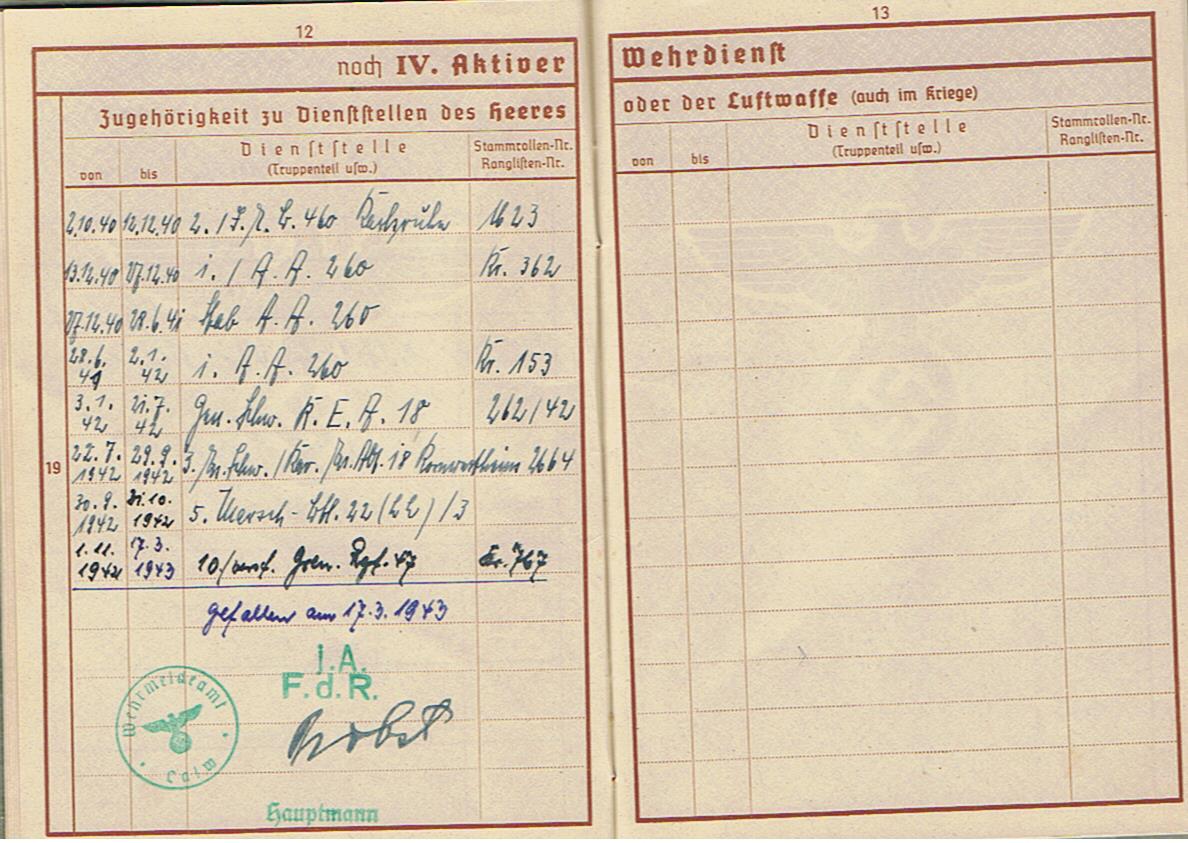 12
noch IV. Aktiver
Zugehörigkeit zu Dienststellen des Heeres
von bis Dienststelle (Truppenteil usw.) Stammrollen-Nr. Ranglisten-Nr.
2.10.40 12.12.40 2./J. 460 1623
13.12.40 27.12.40 1./ A. A. 260 Kr. 362
27.12.40 28.6.41 Stab A. A. 260
28.6.41 2.1.42 1. A. A. 260 Kr. 153
3.1.42 21.7.42 Gen. Schw. K. E. A. 18 262/42
19
22.7.1942 29.9.1942 3./Gen. Schw./Kav./Ers. Abt. 18 Kornwestheim 2664
30.9.1942 31.10.1942 5. Marsch-Btl. 22 (LL) /3
1.11.1942 17.3.1943 10/verst. Gren. Rgt. 47 Kr. 767
gefallen am 17.3.1943
J.A.
F.d.R.
Wehrmeldeamt
Calw
Hauptmann
13
Wehrdienst
oder der Luftwaffe (auch im Kriege)
von bis Dienststelle (Truppenteil usw.) Stammrollen-Nr. Ranglisten-Nr.